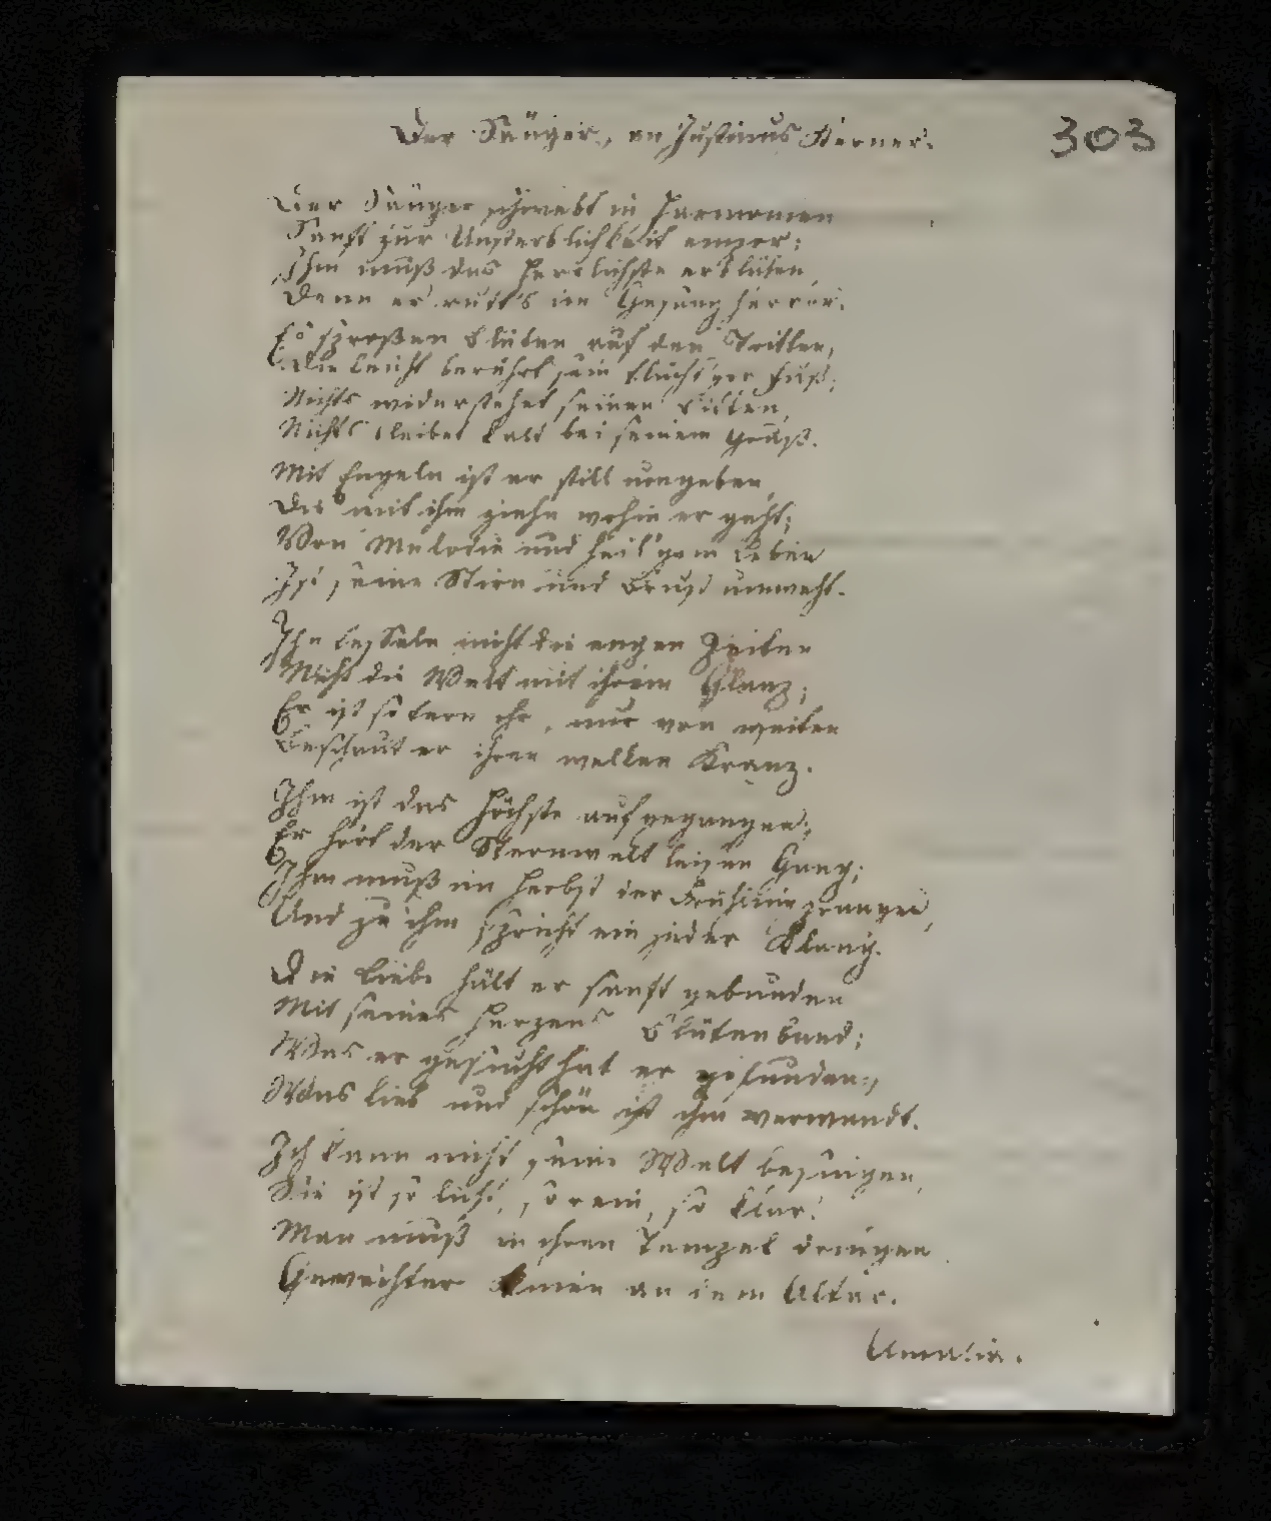 Der Sänger, an Justinus Kerner.
303
Der Sänger schwebt in Harmonien
Sanft zur Unsterblichkeit empor;
Ihm muß das Herrlichste erblühen,
Denn er ruft's im Gesang hervor.
Es sproßen Blüten auf den Tritten,
Die leicht berührt sein flücht'ger Fuß;
Nichts widerstehet seinen Bitten,
Nichts bleibet kalt bei seinem Gruß.
Mit Engeln ist er still umgeben,
Die mit ihm ziehn wohin er geht;
Von Melodie und heil'gem Leben
Ist seine Stirn und Brust umweht.
Ihn fesseln nicht die engen Zeiten
Nicht die Welt mit ihrem Glanz;
Er ist so fern ihr, nur von weiten
Beschaut er ihren welken Kranz.
Ihm ist das Höchste aufgegangen;
Er hört der Sternwelt leisen Gang;
Ihm muß im Herbst der Frühling prangen,
Und zu ihm spricht ein jeder Klang.
Die Liebe hält er sanft gebunden
Mit seines Herzens Blütenband;
Was er gesucht hat er gefunden,
Was lieb und schön ist ihm verwandt.
Ich kann nicht seine Welt besingen,
Sie ist so licht, so rein, so klar!
Man muß in ihren Tempel dringen
Geweihter knien an dem Altar.
Amalia.